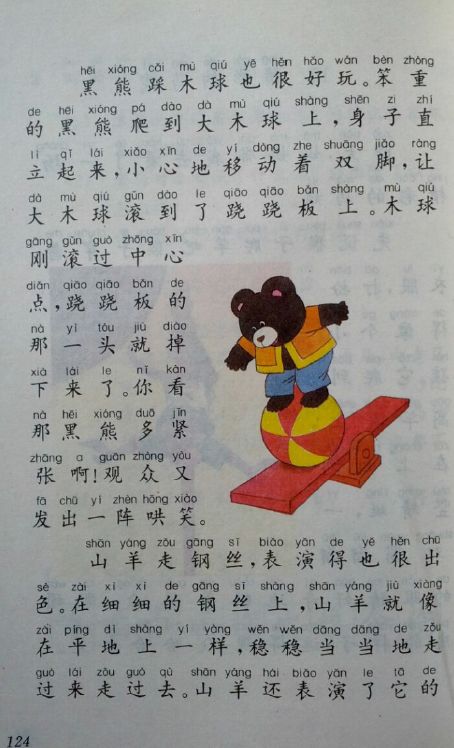 hēi xióng cǎi mù qiú yě hěn hǎo wán bèn zhòng
黑熊踩木球也很好玩。笨重
de hēi xióng pá dào dà mù qiú shàng shēn zi zhí
的黑熊爬到大木球上，身子直
lì qǐ lái xiǎo xīn de yí dòng zhe shuāng jiǎo ràng
立起来，小心地移动着双脚，让
dà mù qiú gǔn dào le qiāo qiāo bǎn shàng mù qiú
大木球滚到了跷跷板上。木球
gāng gǔn guò zhōng xīn
刚滚过中心
diǎn qiāo qiāo bǎn de
点，跷跷板的
nà yì tóu jiù diào
那一头就掉
xià lái le nǐ kàn
下来了。你看
nà hēi xióng duō jǐn
那黑熊多紧
zhāng a guān zhòng yòu
张啊！观众又
fā chū yí zhèn hōng xiào
发出一阵哄笑。
shān yáng zǒu gāng sī biǎo yǎn de yě hěn chū
山羊走钢丝，表演得也很出
sè zài xì xì de gāng sī shàng shān yáng jiù xiàng
色。在细细的钢丝上，山羊就像
zài píng dì shàng yí yàng wěn wěn dāng dāng de zǒu
在平地上一样，稳稳当当地走
guò lái zǒu guò qù shān yáng hái biǎo yǎn le tā de
过来走过去。山羊还表演了它的
124